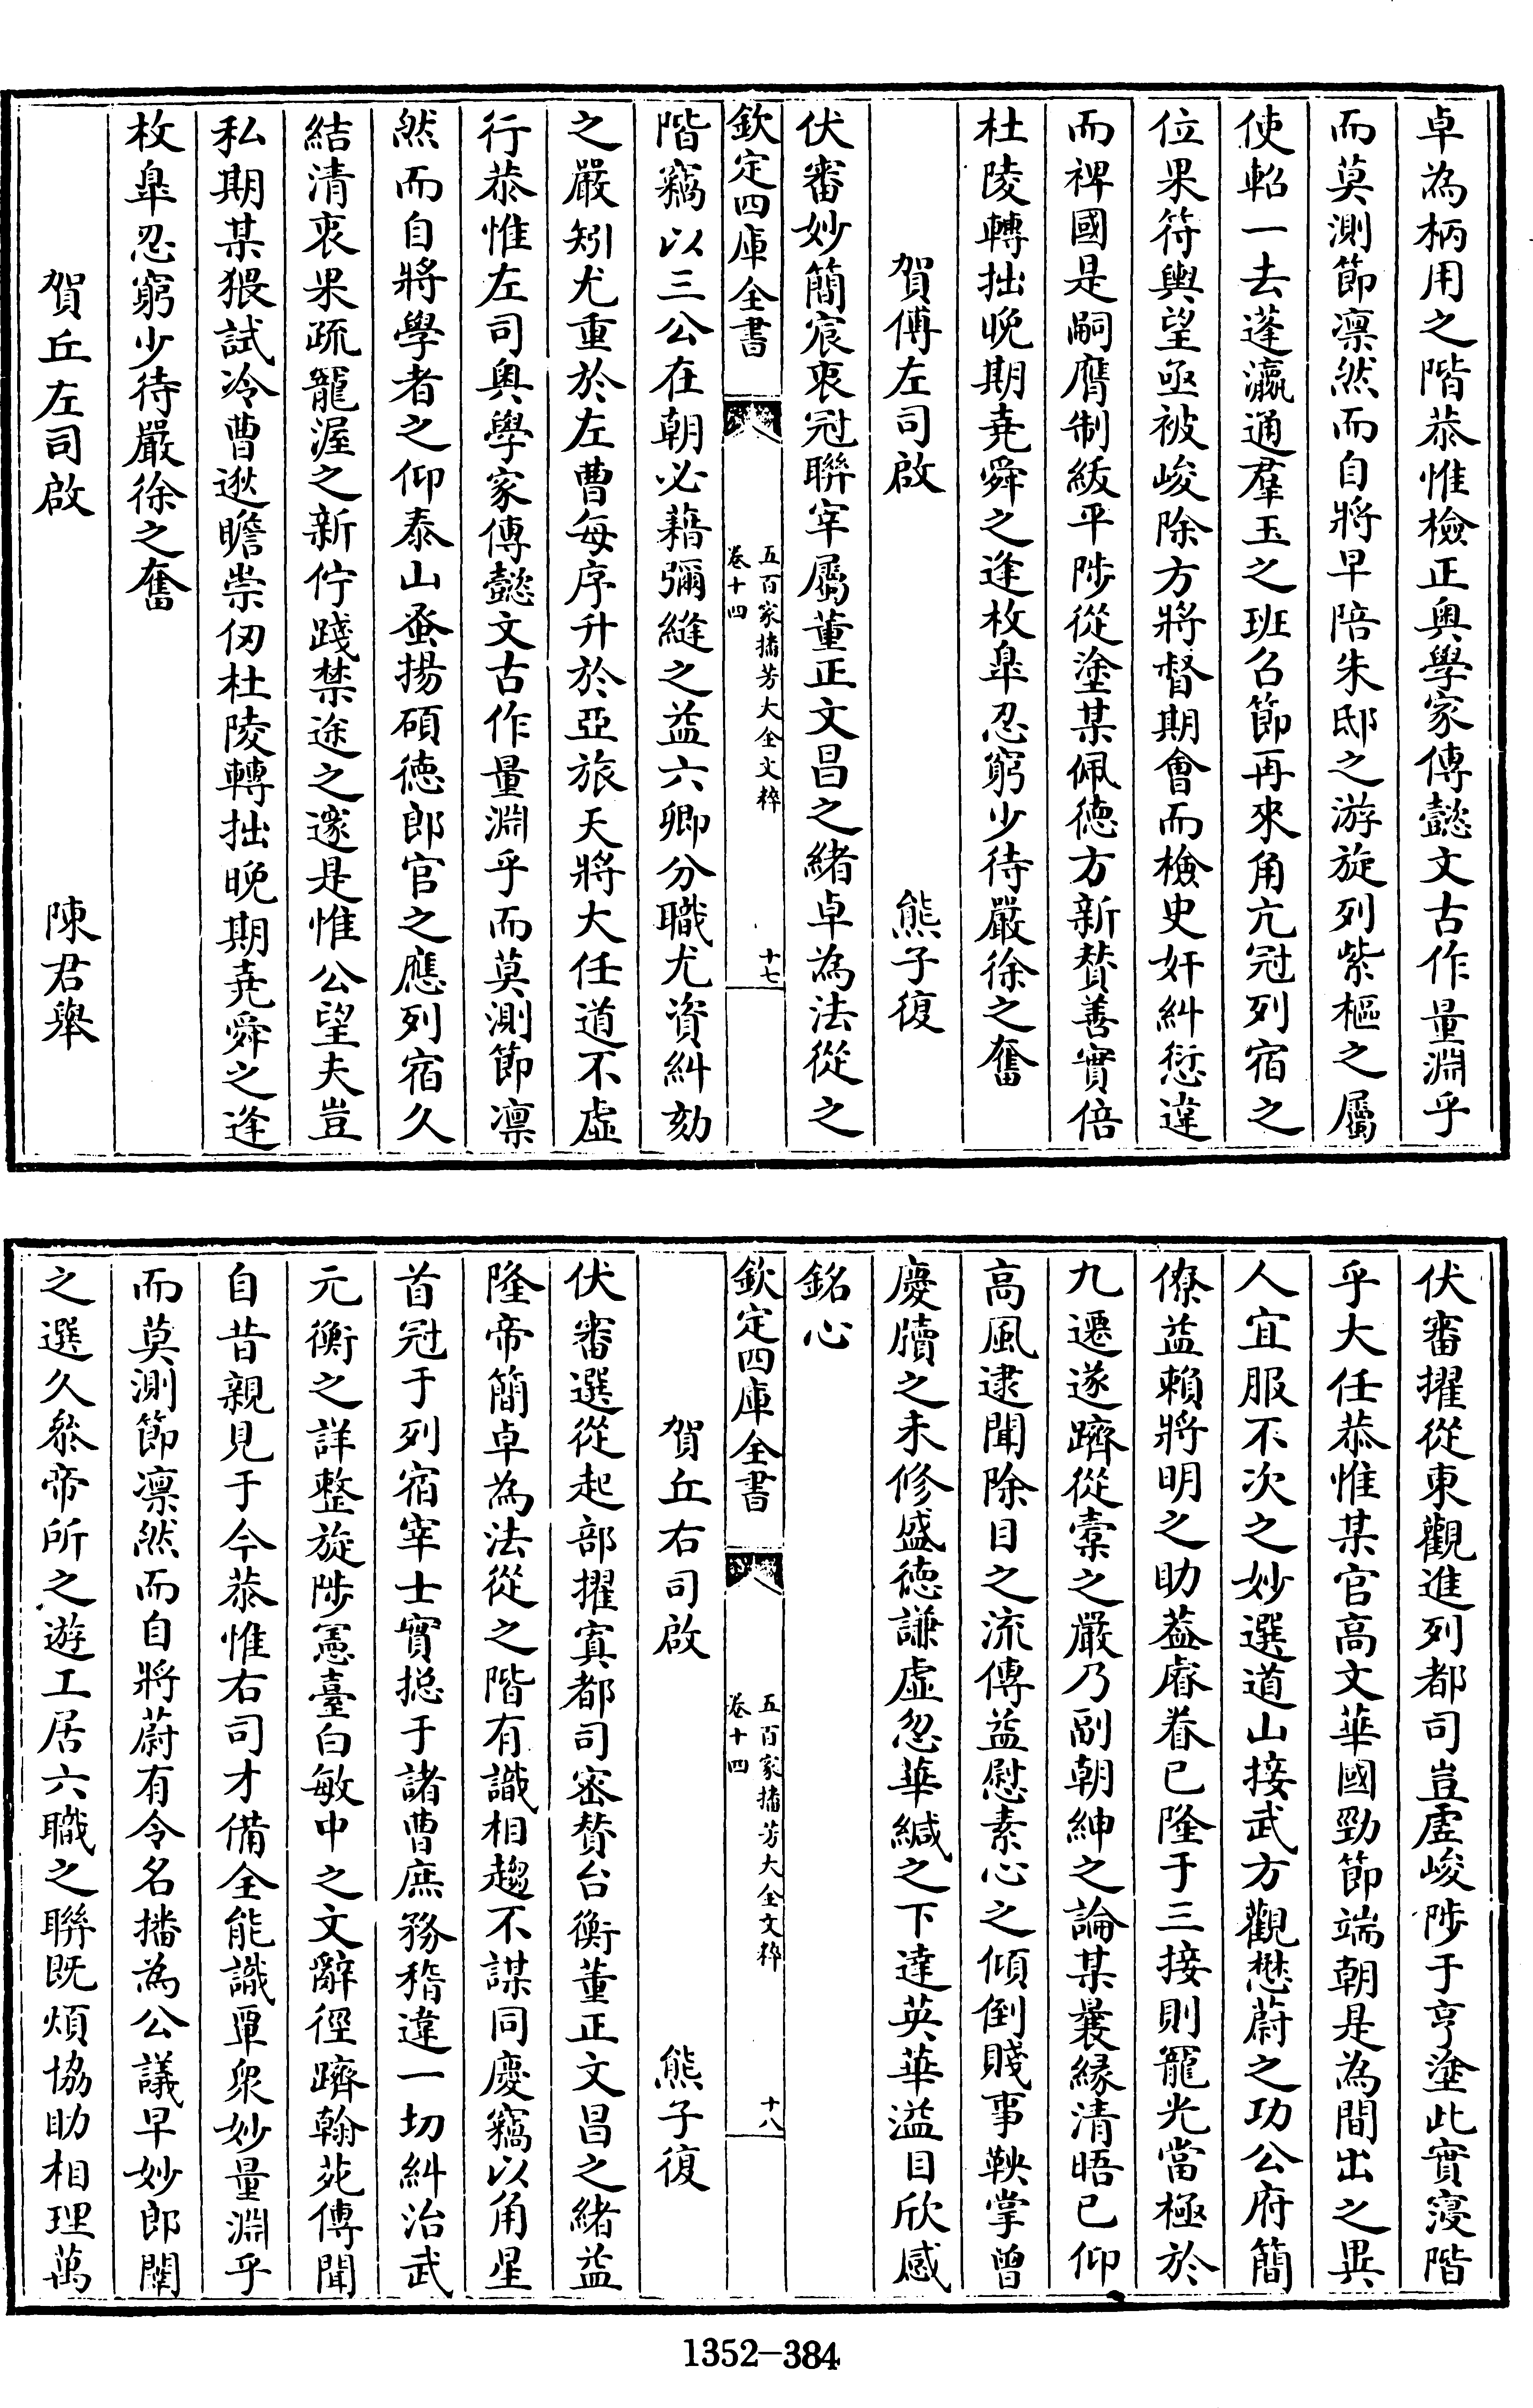 卓為柄用之階恭惟檢正奥學家傳懿文古作量淵乎
而莫測節凛然而自將早陪朱邸之游旋列紫樞之屬
使軺一去蓬瀛通羣玉之班召節再來角亢冠列宿之
位果符輿望亟被峻除方將督期會而檢史奸糾愆違
而裨國是嗣膺制綍平陟從塗某佩德方新賛善實倍
杜陵轉拙晚期堯舜之逢枚臯忍窮少待嚴徐之奮
賀傅左司啟　熊子復
伏審妙簡宸衷冠聨宰屬董正文昌之緒卓為法從之
欽定四庫全書　五百家播芳大全文粹　卷十四　十七
階竊以三公在朝必藉彌縫之益六卿分職尤資糾劾
之嚴矧尤重於左曹每序升於亞旅天將大任道不虛
行恭惟左司奥學家傳懿文古作量淵乎而莫測節凛
然而自將學者之仰泰山蚤揚碩德郎官之應列宿久
結清衷果疏寵渥之新佇踐禁途之邃是惟公望夫豈
私期某猥試冷曹逖瞻崇仞杜陵轉拙晚期堯舜之逢
枚臯忍窮少待嚴徐之奮
賀丘左司啟　陳君舉
伏審擢從東觀進列都司豈虛峻陟于亨塗此實寖階
乎大任恭惟某官高文華國勁節端朝是為間出之異
人宜服不次之妙選道山接武方觀懋蔚之功公府簡
僚益賴將明之助葢睿眷已隆于三接則寵光當極於
九遷遂躋從橐之嚴乃副朝紳之論某曩縁清晤已仰
高風逮聞除目之流傳益慰素心之傾倒賤事鞅掌曾
慶牘之未修盛德謙虛忽華緘之下達英華溢目欣感
銘心
欽定四庫全書　五百家播芳大全文粹　卷十四　十八
賀丘右司啟　熊子復
伏審選從起部擢寘都司密賛台衡董正文昌之緒益
隆帝簡卓為法從之階有識相趨不謀同慶竊以角星
首冠于列宿宰士實揔于諸曹庶務稽違一切糾治武
元衡之詳整旋陟憲臺白敏中之文辭徑躋翰苑傳聞
自昔親見于今恭惟右司才備全能識單衆妙量淵乎
而莫測節凛然而自將蔚有令名播為公議早妙郎闈
之選久叅帝所之遊工居六職之聨既煩協助相理萬
1352-384